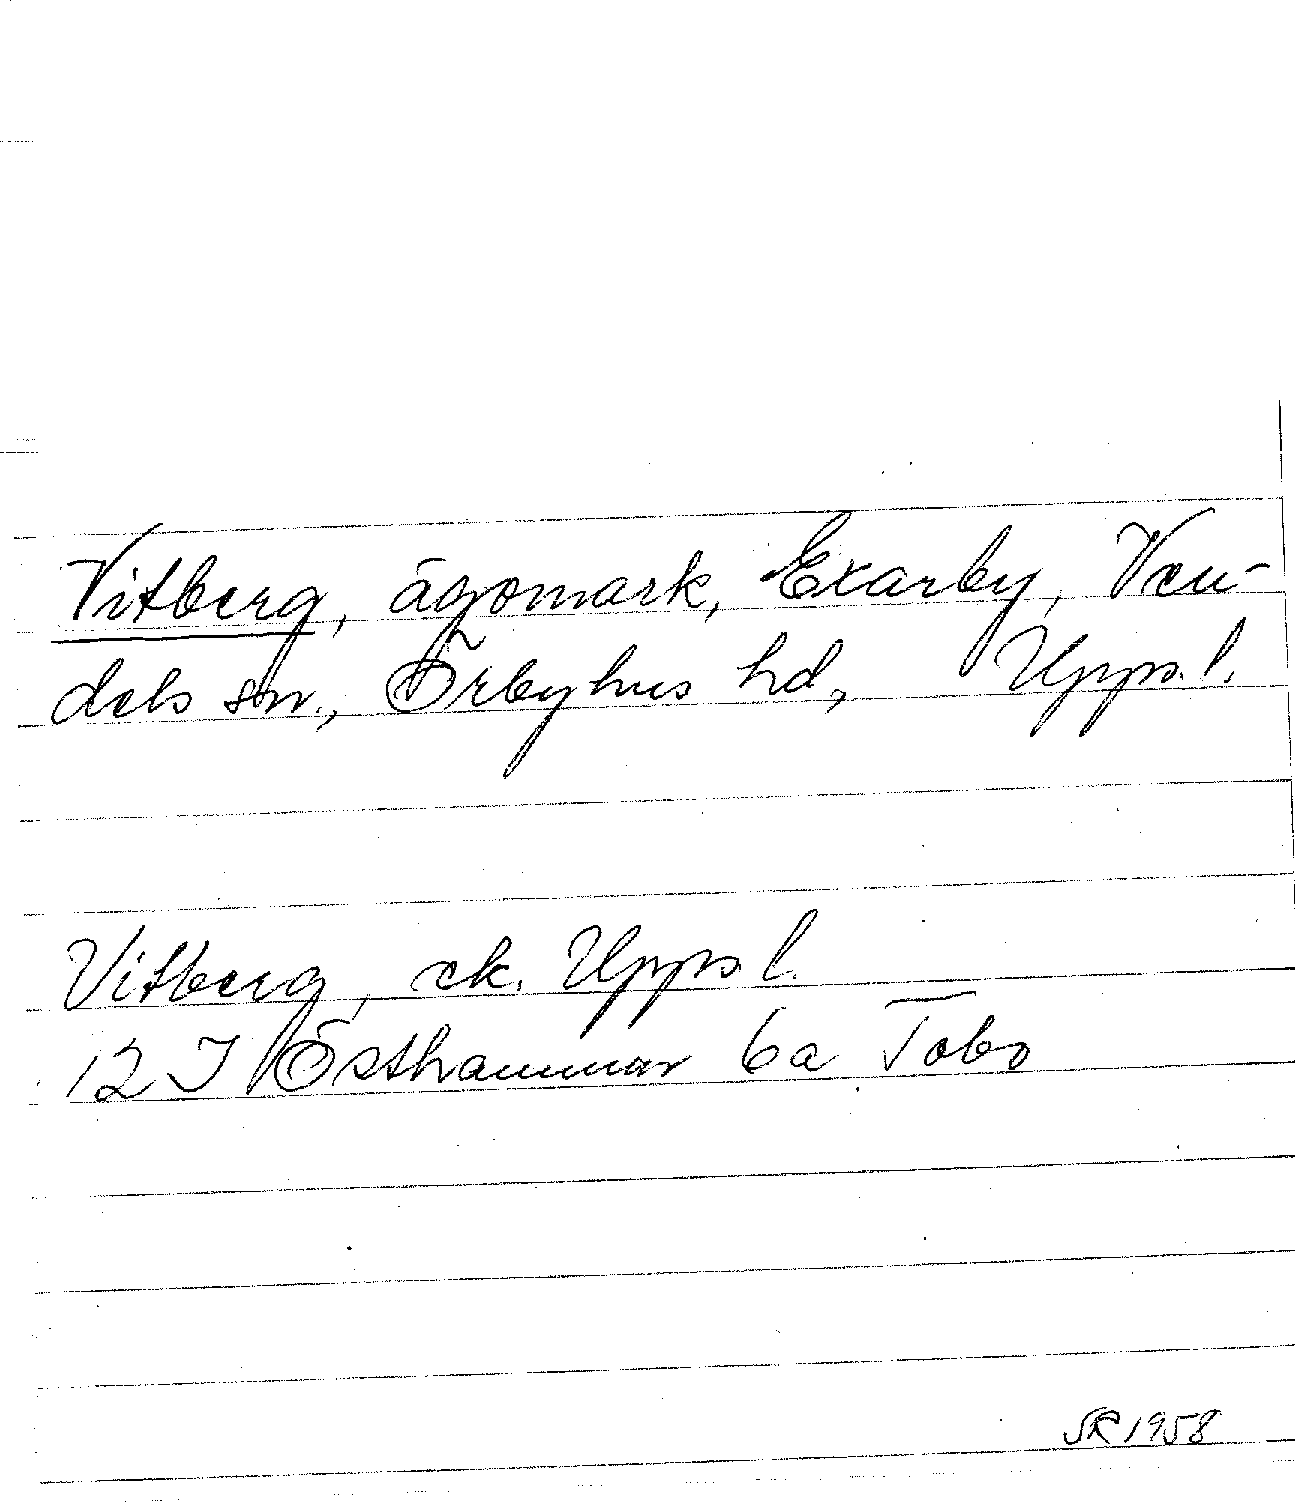 Vitberg, ägomark, Exarby, Ven-
dels sn., Örbyhus hd, Upps. l.
Vitberg, ek. Upps. l.
12 I Östhammar 6a Tobo
SR 1958